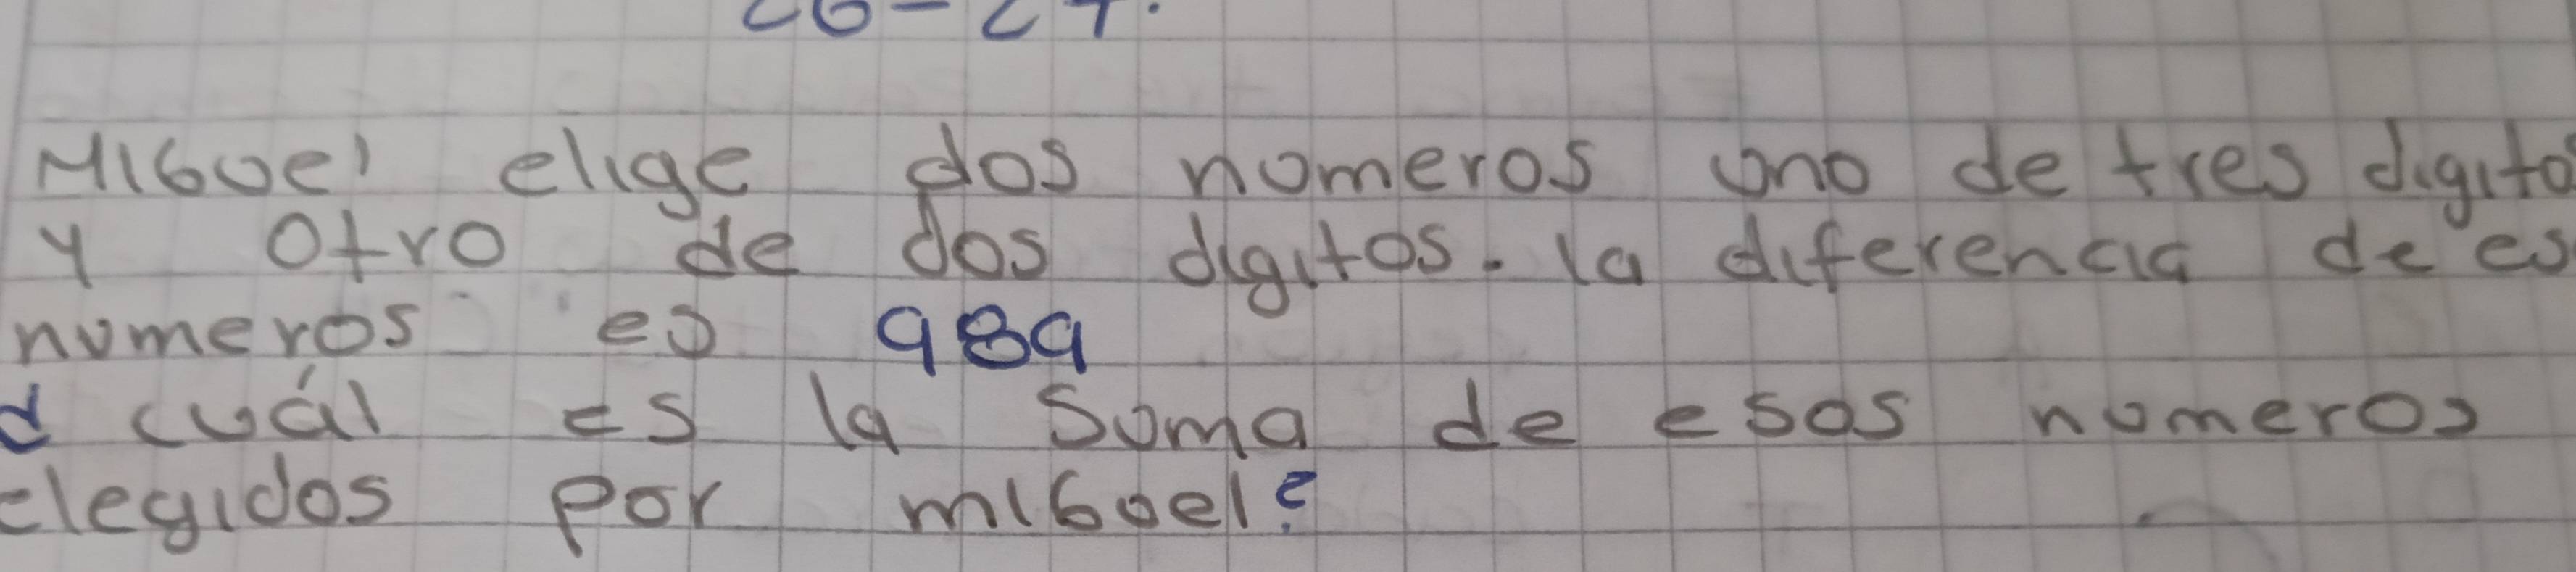 Miguel elige dos numeros uno de tres digito
y otro de dos digitos. la diferencia de es
numeros es 989
d cuál es la soma de esos numeros
elegidos por miguel?